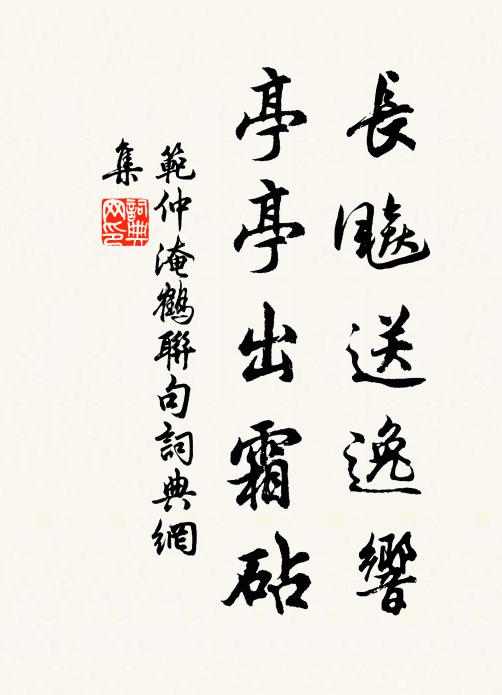 長飈送逸響
亭亭出霜砧
範仲淹鶴聯句詞典網
集
詞典
网印